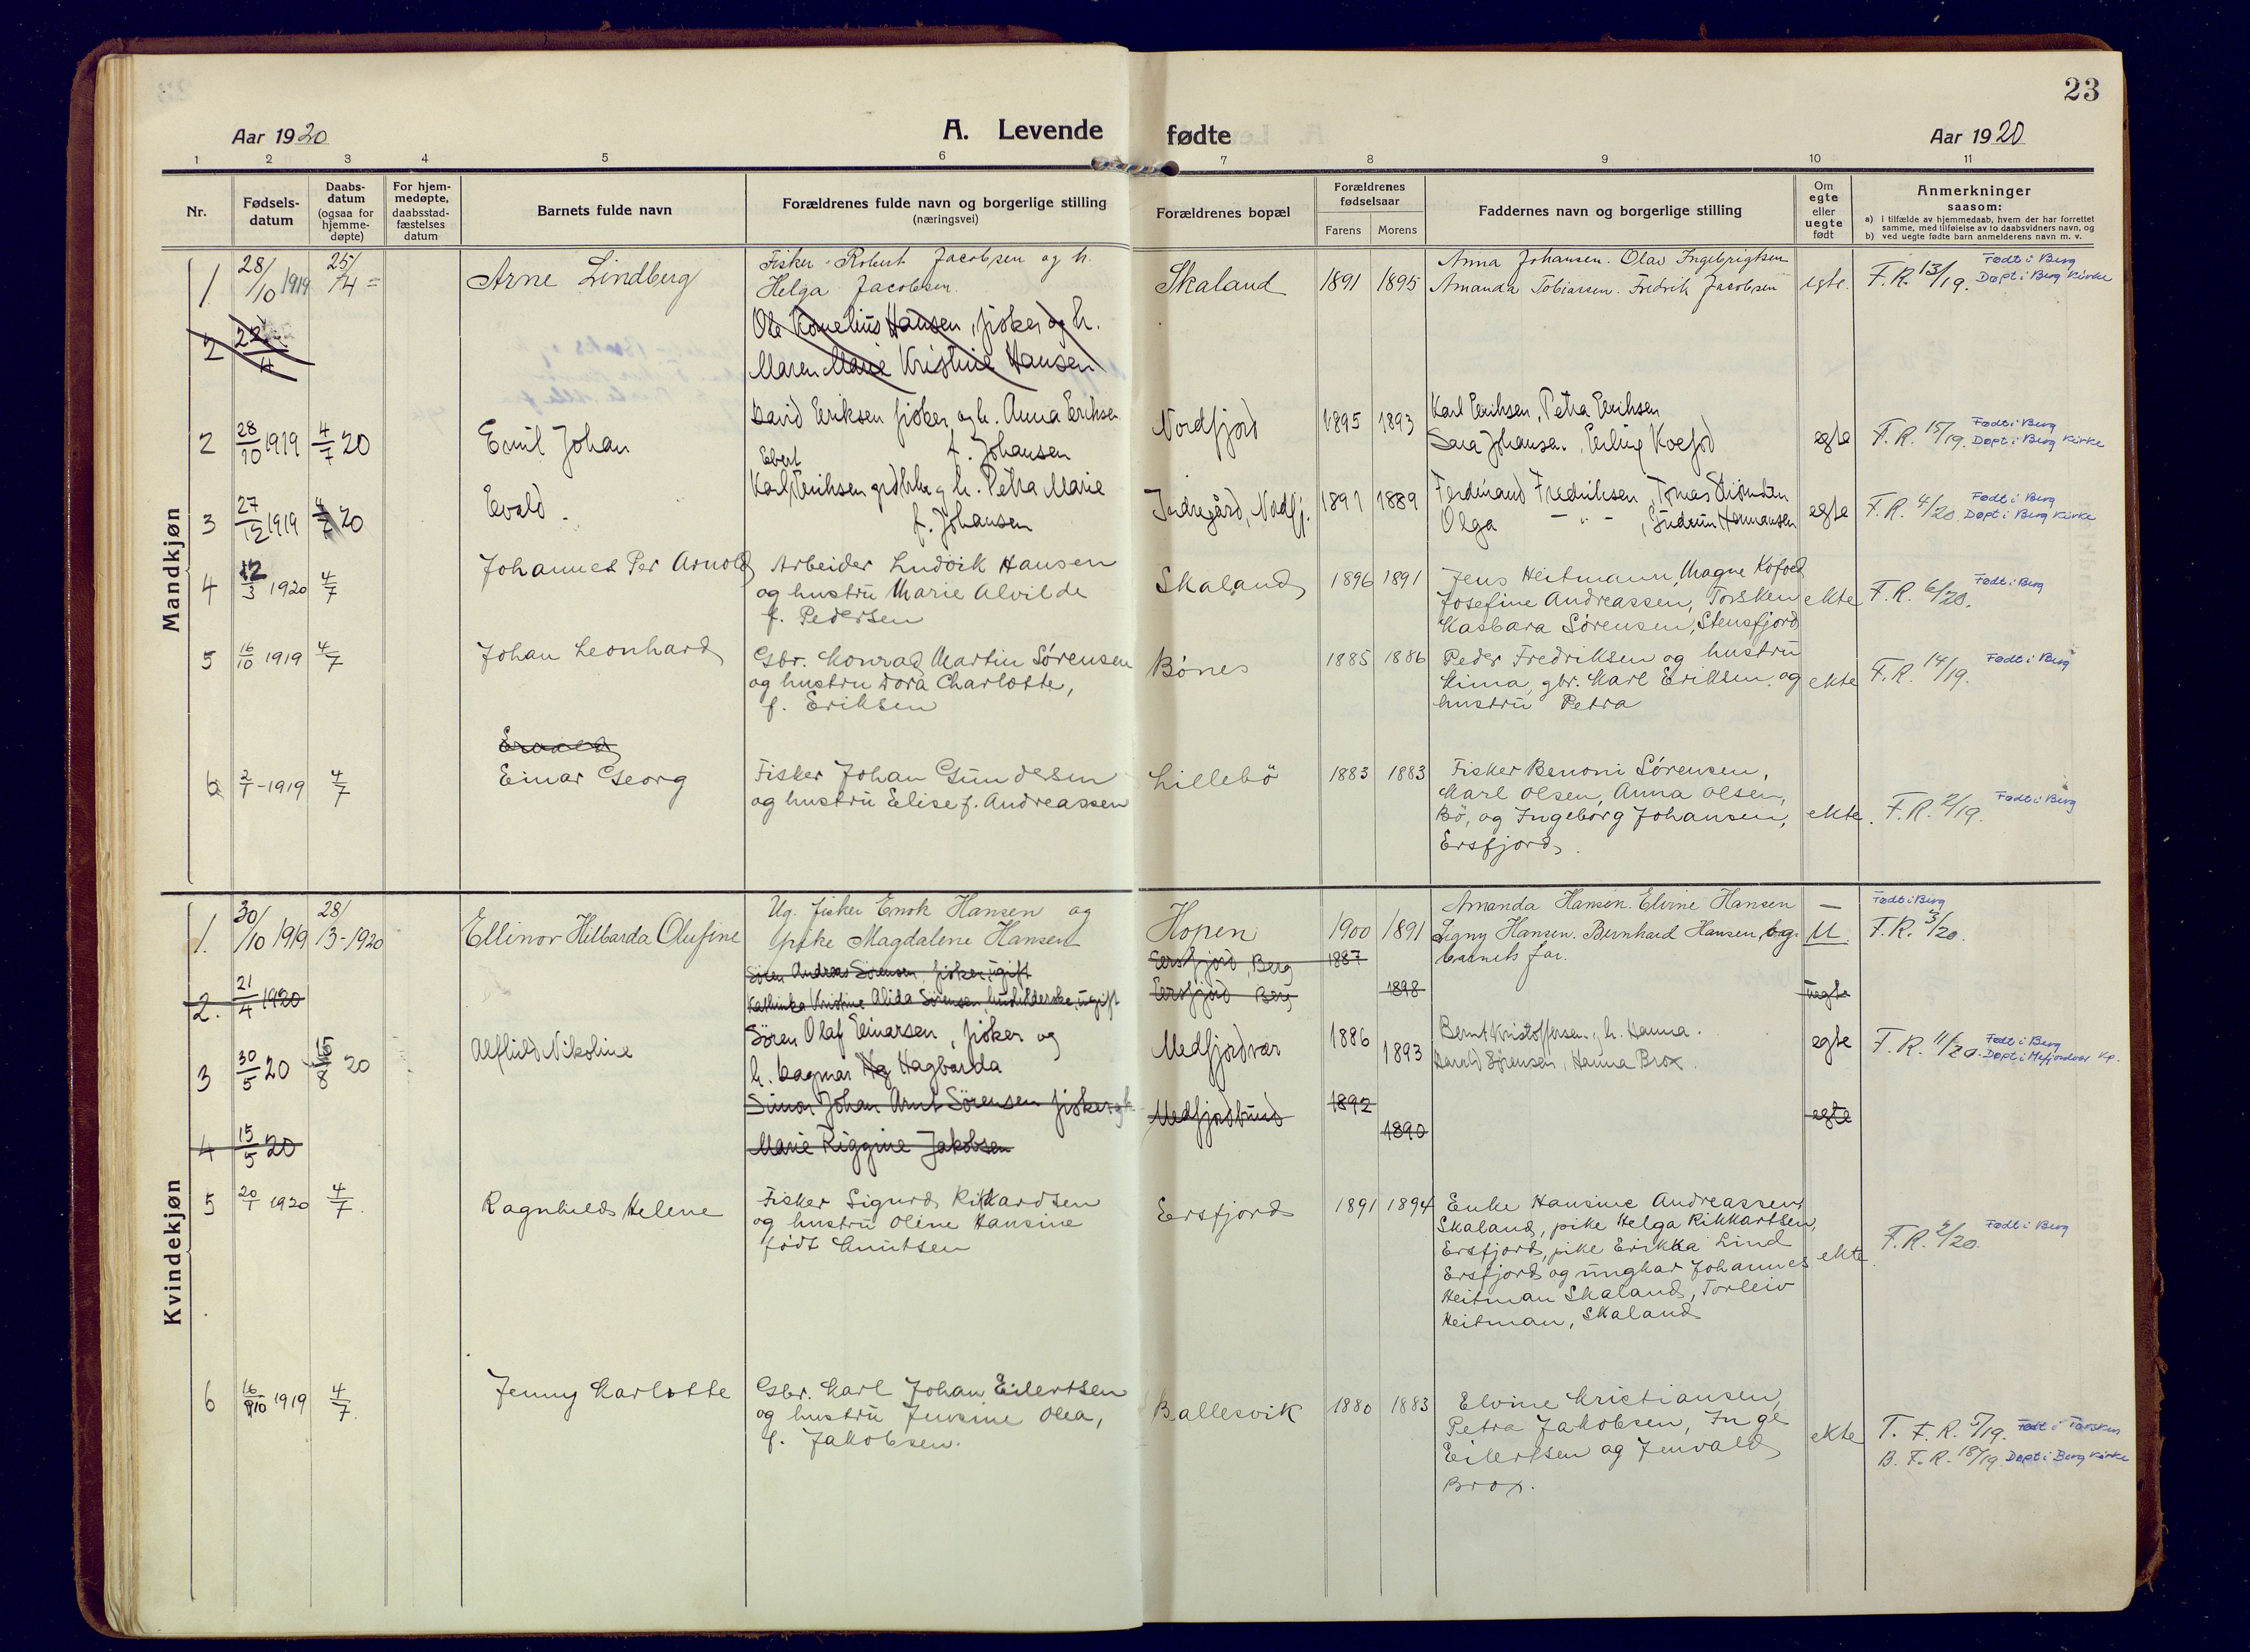 23
Aar 1920
A. Levende fødte
Aar 1920
1 2 3 4 5 6 7 8 9 10 11
Nr.
Fødsels-
datum
Daabs-
datum
(ogsaa for
hjemme-
døpte)
For hjem-
medøpte,
daabsstad-
fæstelses
datum
Barnets fulde navn
Forældrenes fulde navn og borgerlige stilling
(næringsvei)
Forældrenes bopæl
Forældrenes
fødselsaar
Farens Morens
Faddernes navn og borgerlige stilling
Om
egte
eller
uegte
født
Anmerkninger
saasom:
a) i tilfælde av hjemmedaab, hvem der har forrettet
samme, med tilføielse av to daabsvidners navn, og
b) ved uegte fødte barn anmelderens navn m. v.
Mandkjøn
1 28/10 1919 25/4 = Arne Lindberg
Fisker Robert Jacobsen og h.
Helga Jacobsen.
Skaland 1891 1895
Anna Johansen. Olav Ingebrigtsen
Amanda Tobiassen. Fredrik Jacobsen
egte. F.R. 13/19. Født i Berg
Døpt i Berg Kirke
2 22/4
Ole Kornelius Hansen, fisker og h.
Maren Marie Kristine Hansen
2 28/10 1919 4/7 20 Emil Johan
David Eriksen fisker og h. Anna Eriksen
f. Johansen
Nordfjord 1895 1893
Karl Eriksen, Petra Eriksen
Sara Johansen, Erling Koefod
egte F.R. 15/19. Født i Berg
Døpt i Berg Kirke
3 27/12 1919 4/7 20 Evald.
Ebert
Karl Eriksen grdbr. og h. Petra Marie
f. Johansen
Indregård, Nordfj. 1891 1889
Ferdinand Fredriksen, Tomas
Olga - " -, Gudrun Hermansen
egte F.R. 4/20. Født i Berg
Døpt i Berg Kirke
4 12/3 1920 4/7 Johannes Per Arnold
Arbeider Ludvik Hansen
og hustru Marie Alvilde
f. Pedersen
Skaland 1896 1891
Jens Heitmann, Magne Kofoed
Josefine Andreassen, Torsken
Kasbara Sørensen, Stensfjord
ekte F.R. 6/20. Født i Berg
5 16/10 1919 4/7 Johan Leonhard
Gbr. Konrad Martin Sørensen
og hustru Dora Charlotte,
f. Eriksen
Bónes 1885 1886
Peder Fredriksen og hustru
Mina, gbr. Karl Eriksen og
hustru Petra
ekte F.R. 14/19. Født i Berg
6 2/1 - 1919 4/7 Einar Georg
Fisker Johan Gundersen
og hustru Elise f. Andreassen
Lillebö 1883 1883
Fisker Benoni Sörensen,
Karl Olsen, Anna Olsen,
Bö, og Ingeborg Johansen,
Ersfjord.
ekte. F.R. 2/19. Født i Berg
Kvindekjøn
1. 30/10 1919 28/3-1920 Ellinor Hilbarda Olufine
Ug. fisker Enok Hansen og
pike Magdalene Hansen
Hopen 1900 1891
Amanda Hansen. Elvine Hansen
Signy Hansen. Bernhard Hansen, og
barnets far.
— U. Født i Berg
F.R. 3/20.
2. 21/4 1920
Sören Andreas Sörensen fisker, ugift
Kathinka Kristine Alida Sörensen, budeilderske, ugift
Ersfjord, Berg 1887
Ersfjord Berg 1898
uegte
3 30/5 20 15/8 20 Alfhild Nikoline
Sören Olaf Einarsen, fisker og
h. Dagmar Hagbarda
Medfjordvær 1886 1893
Bernt Kristoffersen, h. Hanna.
Harald Sørensen, Hanna Brox.
egte F.R. 11/20. Født i Berg
Døpt i Mefjordvær Kp.
4 15/5 20
Simon Johan Arnt Sörensen fisker og h.
Marie Riggine Jakobsen
Medfjordbund 1892 1890
egte
5 20/1 1920 4/7. Ragnhild Helene
Fisker Sigurd Rikkardsen
og hustru Oline Hansine
född Knutsen
Ersfjord 1891 1894
Enke Hansine Andreassen,
Skaland, pike Helga Rikkartsen,
Ersfjord, pike Erikka Lind
Ersfjord og ungkar Johannes
Heitman Skaland, Torleiv
Heitman, Skaland
ekte. F.R. 2/20. Født i Berg
6 16/10 1919 4/7. Jenny Karlotte
Gbr. Karl Johan Eilertsen
og hustru Jensine Olea,
f. Jakobsen.
Ballesvik 1880 1883
Elvine Kristiansen,
Petra Jakobsen, Inge
Eilertsen og Jenvald
Brox.
ekte T. F.R. 5/19. Født i Torsken
B. F.R. 18/19 Døpt i Berg Kirke